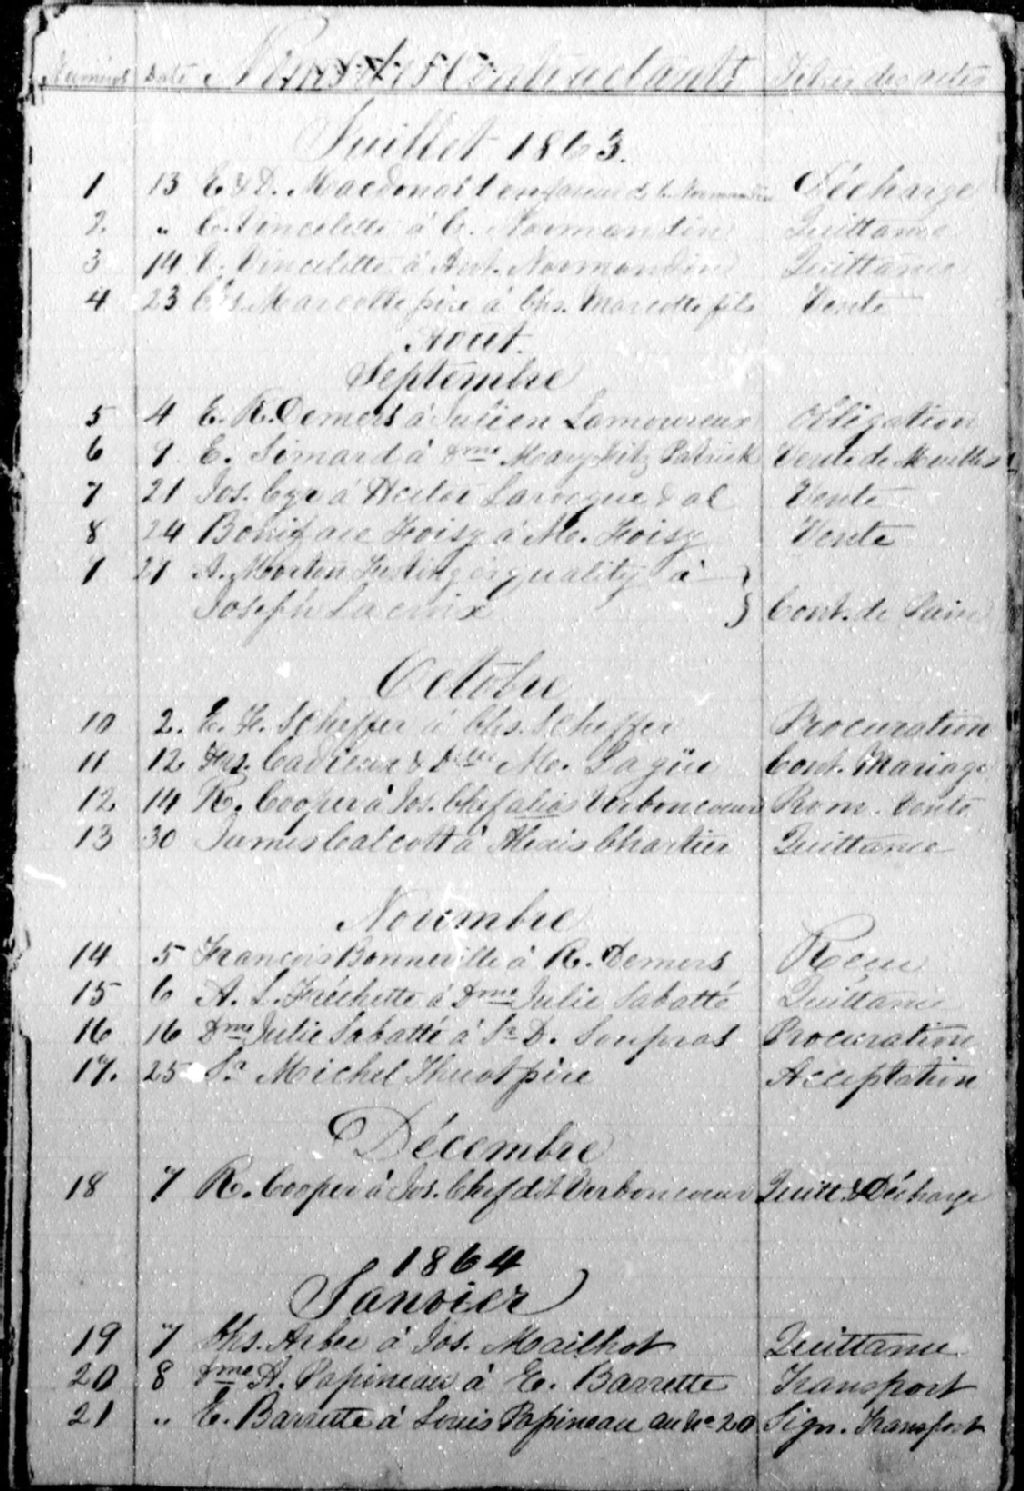 Numéros Date Noms des Contractants Titres des actes
Juillet 1863.
1 13 E. & D. Macdonald en faveur de C. Normandin Décharge
2 " C. Vincelette à C. Normandin Quittance
3 14 C. Vincelette à Ant. Normandin Quittance
4 23 Chs. Marcotte père à Chs. Marcotte fils Vente
Aout.
Septembre
5 4 E. R. Demers à Julien Lamoureux Obligation
6 9 E. Simard à Dme Mary Fitz Patrick Vente de Meubles
7 21 Jos. Cyr à Hector Larocque & al Vente
8 24 Boniface Foisy à M. Foisy Vente
1 21 A. Morten esquality à
Joseph Lacroix Cont. de
Octobre
10 2. E. H. Scheffer à Chs. Scheffer Procuration
11 12 Frs. Cadieux & Dlle Me. Lagüe Cont. Mariage
12 14 R. Cooper à Jos. Chef alias Verboncoeur Prom. Vente
13 30 James Calcott à Alexis Chartier Quittance
Novembre
14 5 François Bonneville à R. Demers Recu
15 6 A. L. Fréchette à Dme Julie Sabatté Quittance
16 16 Dme Julie Sabatté à Sr D. Soupras Procuration
17. 25 Sr Michel Huot père Acceptation
Décembre
18 7 R. Cooper à Jos. Chef dit Verboncoeur Quitt. & Décharge
1864
Janvier
19 7 Chs. Arbec à Jos. Mailhot Quittance
20 8 Dme A. Papineau à E. Barrette Transport
21 " E. Barrette à Louis Papineau au No 20 Sign. Transport